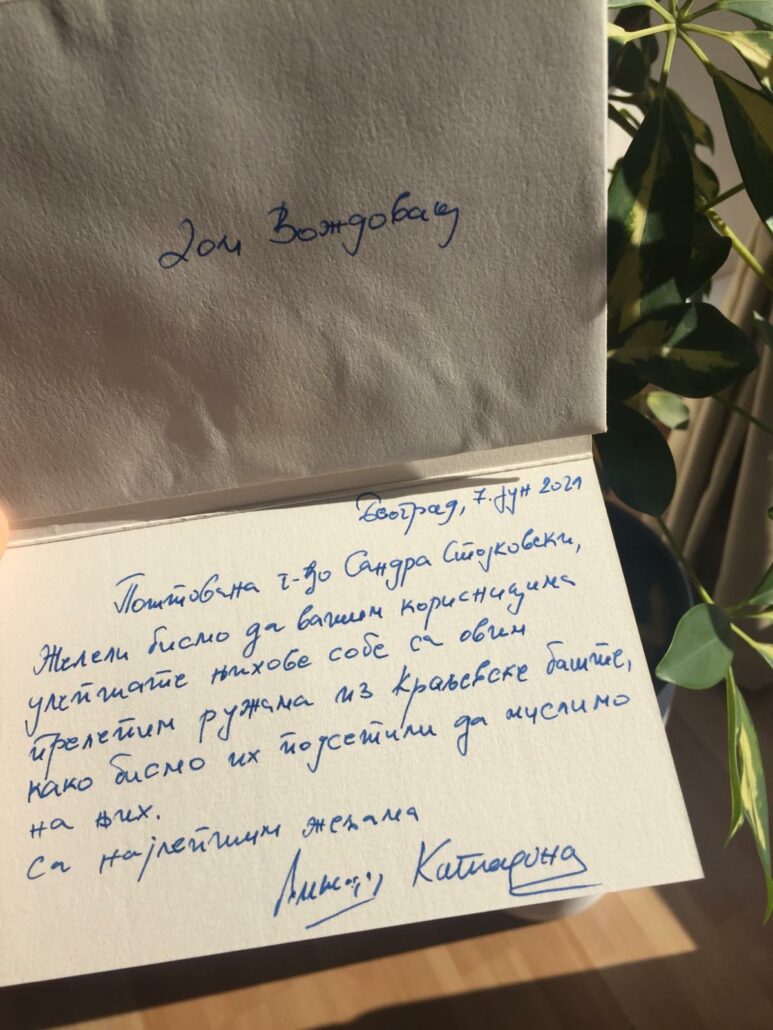 Дом Вождовац
Београд, 7. јун 2021
Поштована г-ђо Сандра Стојковски,
Желели бисмо да вашим корисницима
улепшате њихове собе са овим
прелепим ружама из Краљевске баште,
како бисмо их подсетили да мислимо
на њих.
са најлепшим жељама
Катарина